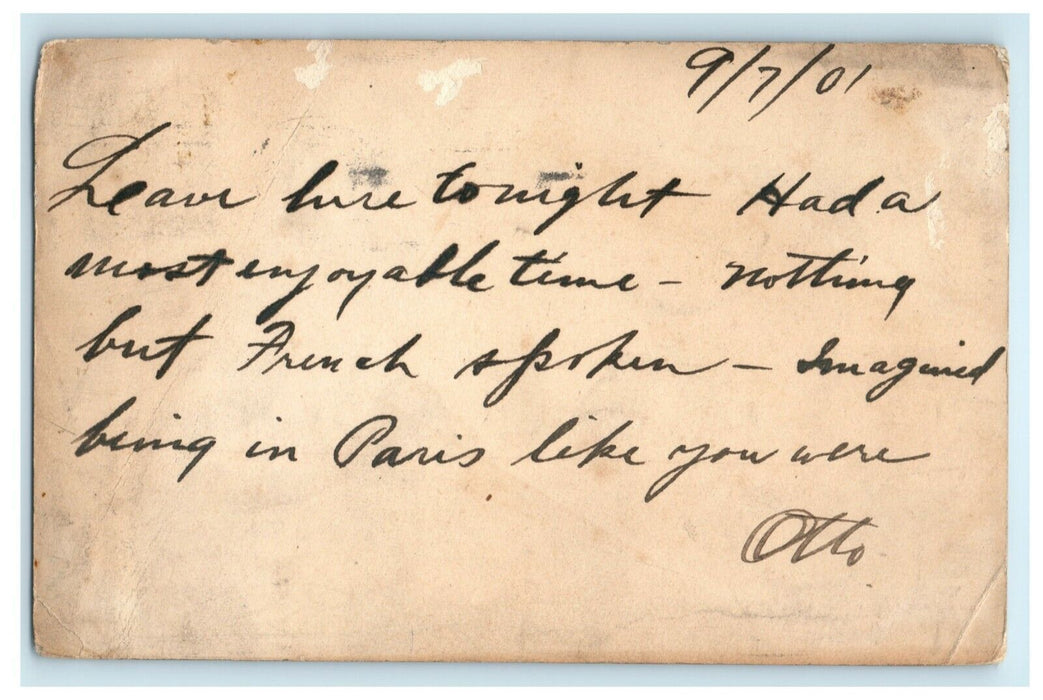 9/7/01
Leave here tonight Had a
most enjoyable time – nothing
but French spoken – Imagined
being in Paris like you were
Otto